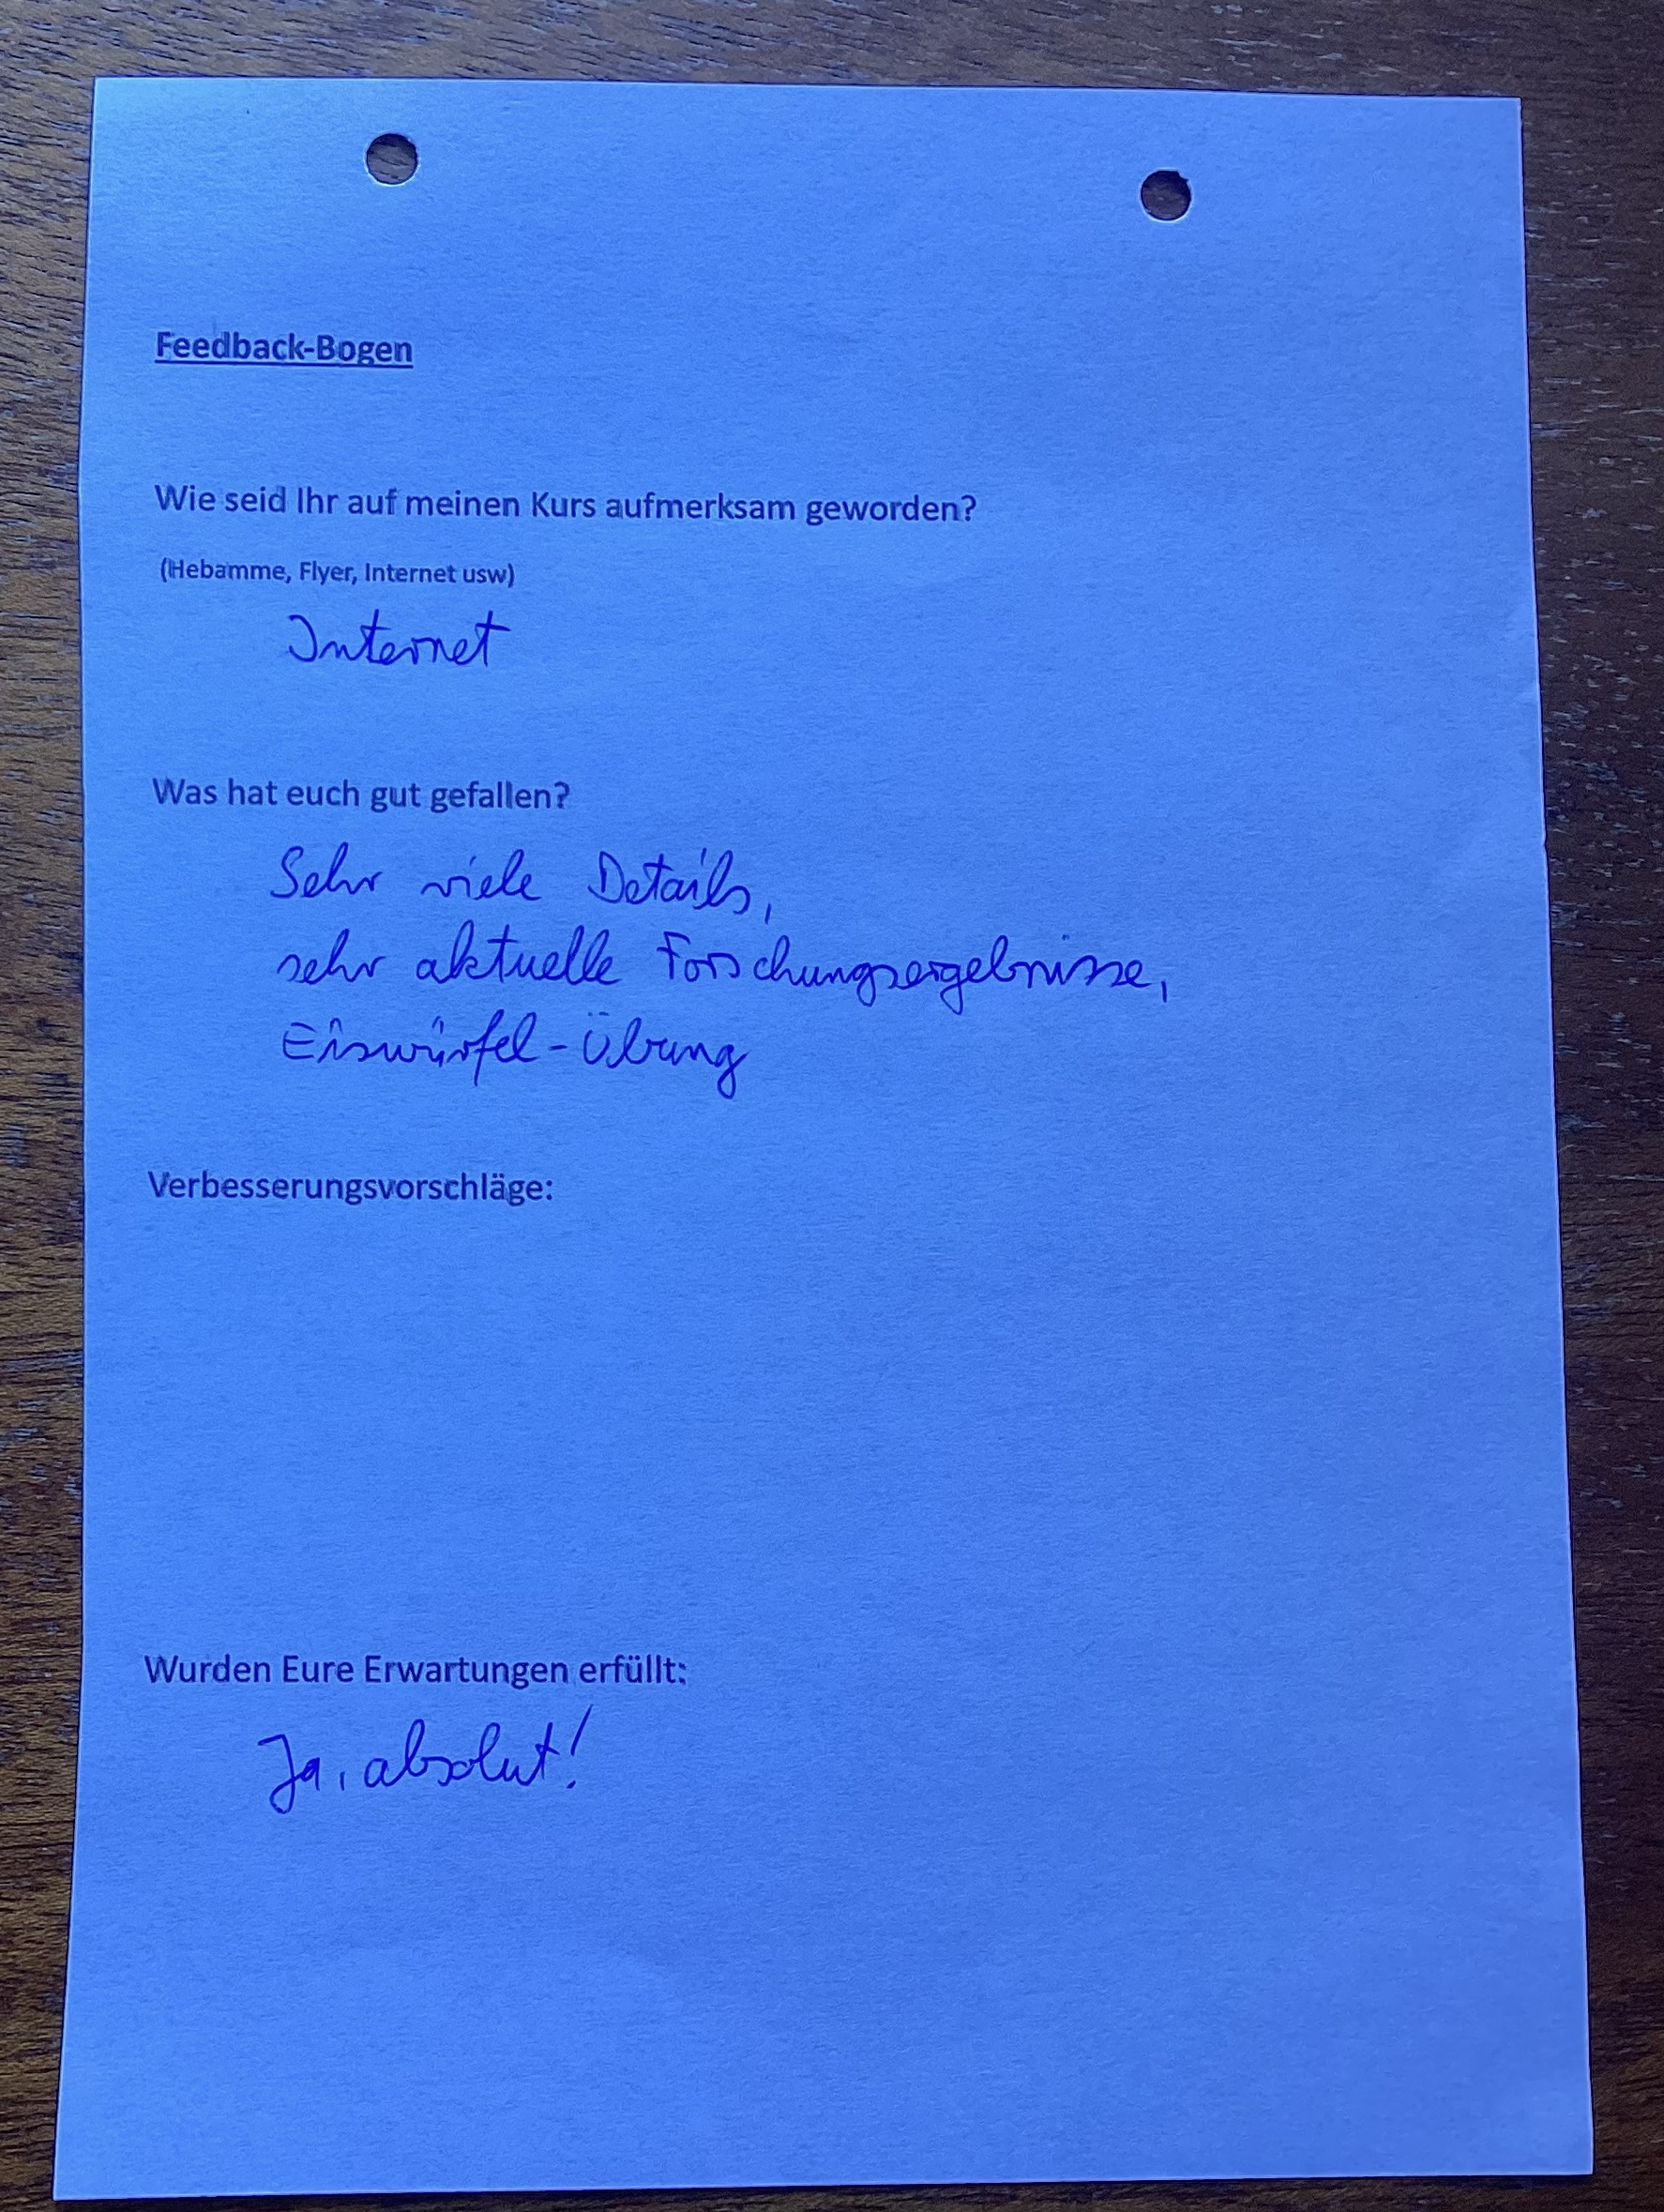 Feedback-Bogen
Wie seid Ihr auf meinen Kurs aufmerksam geworden?
(Hebamme, Flyer, Internet usw)
Internet
Was hat euch gut gefallen?
Sehr viele Details,
sehr aktuelle Forschungsergebnisse,
Eiswürfel-Übung
Verbesserungsvorschläge:
Wurden Eure Erwartungen erfüllt:
Ja, absolut!